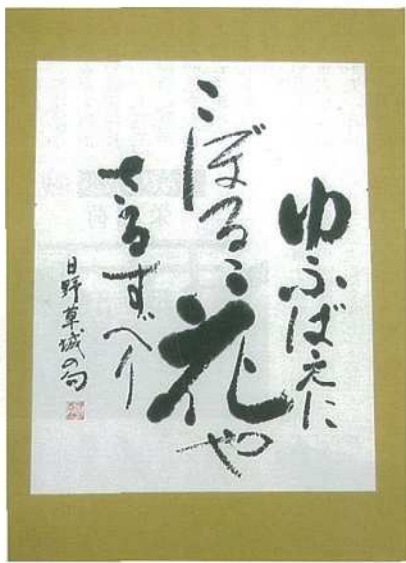 ゆふばえに
こぼるゝ花や
さるすべり
日野草城の句